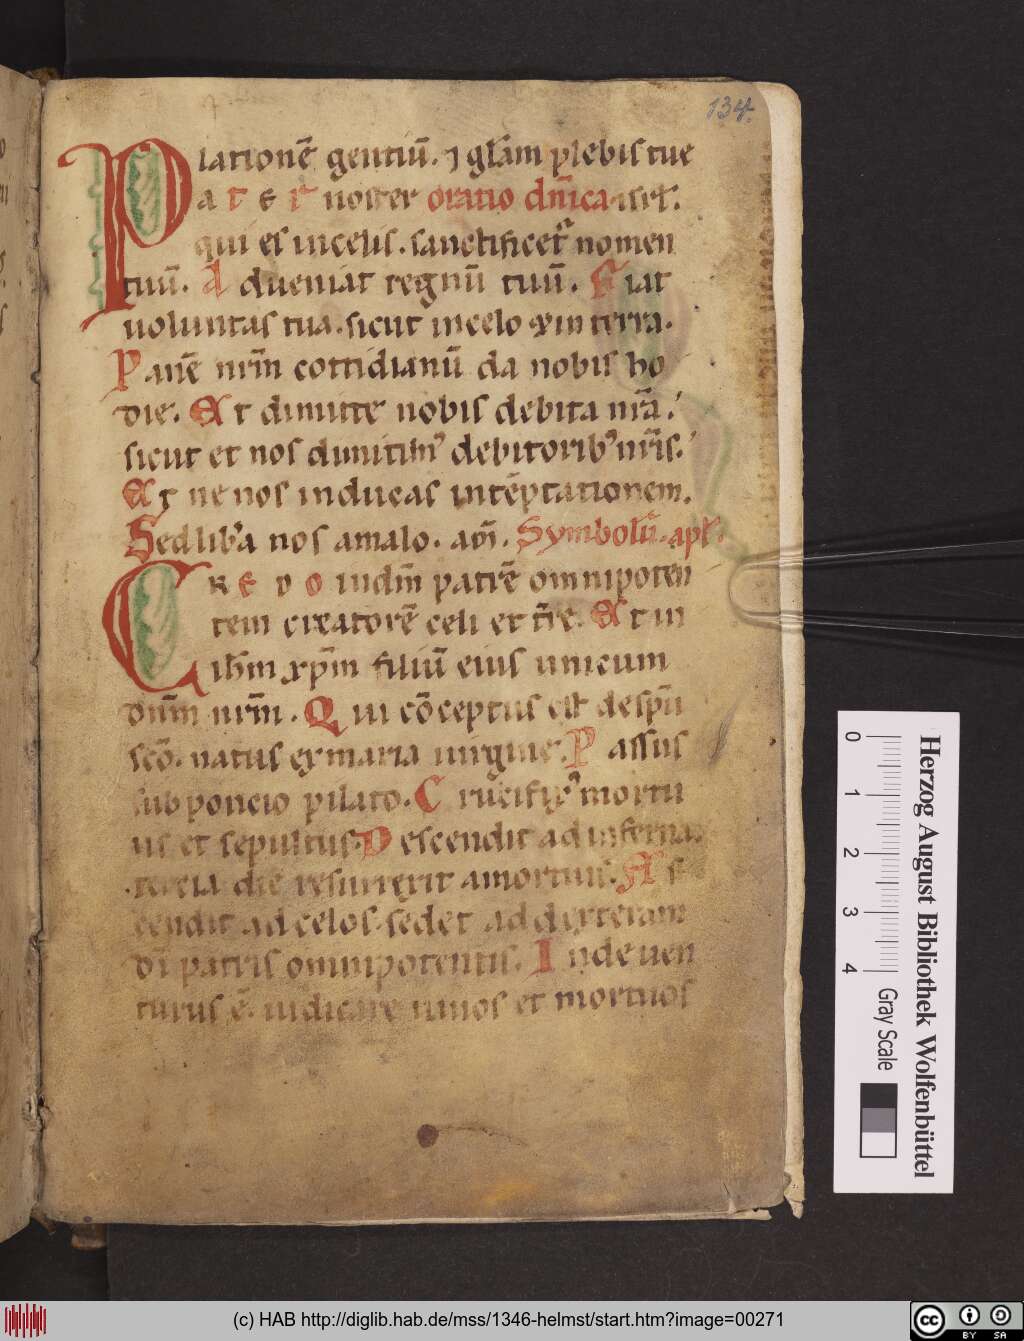 134.
lationē gentiū. ⁊ gl̄am plebis tue
Pa t e r noster oratio dn̄ica
qui es in celis. sanctificet᷑ nomen
tuū. Adueniat regnū tuū. Fiat
uoluntas tua. sicut in celo et in terra.
Panē nr̄m cottidianū da nobis ho
die. Et dimitte nobis debita nr̄a.
sicut et nos dimittimꝰ debitoribꝰ nr̄is.
Et ne nos inducas in tēptationem.
Sed libera nos amalo. am̄. Symbolū. apl̄.
Cr e d o in dm̄ patrē omnipoten
tem creatorē celi et tr̄e. Et in
ih̄m xp̄m filiū eius unicum
dn̄m nr̄m. Qui cōceptus est de spū
scō. natus ex maria uirgine. Passus
sub poncio pilato. Crucifixꝰ mortu
us et sepultus. Descendit ad inferna.
tercia die resurrexit a mortuis. As
cendit ad celos. sedet ad dexteram
dī patris omnipotentis. Inde uen
turus ē. iudicare uiuos et mortuos
0 1 2 3 4
Gray Scale
Herzog August Bibliothek Wolfenbüttel
(c) HAB http://diglib.hab.de/mss/1346-helmst/start.htm?image=00271
cc BY SA